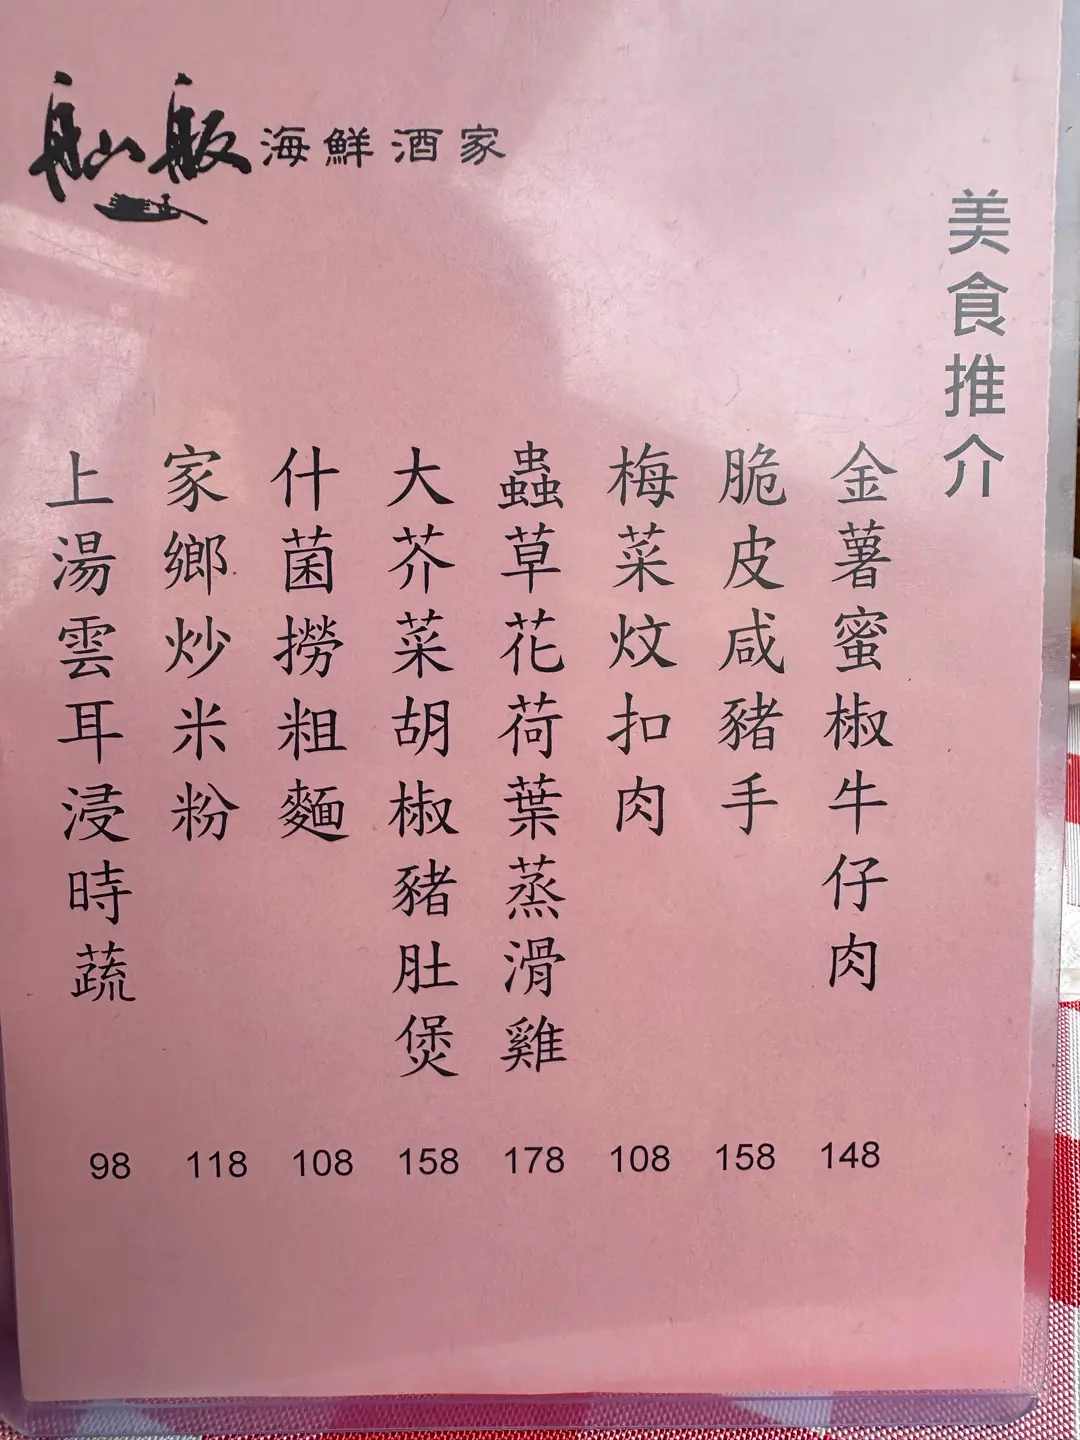 舢舨海鮮酒家
美食推介
金薯蜜椒牛仔肉
148
脆皮咸豬手
158
梅菜炆扣肉
108
蟲草花荷葉蒸滑雞
178
大芥菜胡椒豬肚煲
158
什菌撈粗麵
108
家鄉炒米粉
118
上湯雲耳浸時蔬
98